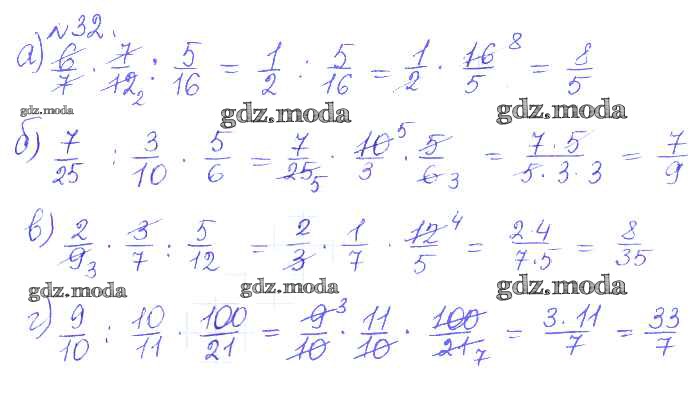 №32.
а) 6/7 · 7/12 2 : 5/16 = 1/2 : 5/16 = 1/2 · 16/5 8 = 8/5
gdz.moda gdz.moda gdz.moda
б) 7/25 : 3/10 · 5/6 = 7/25 5 · 10/3 5 · 5/6 3 = 7·5/5·3·3 = 7/9
gdz.moda
в) 2/9 3 · 3/7 : 5/12 = 2/3 · 1/7 · 12/5 4 = 2·4/7·5 = 8/35
gdz.moda gdz.moda gdz.moda
г) 9/10 : 10/11 · 100/21 = 9/10 3 · 11/10 · 100/21 7 = 3·11/7 = 33/7